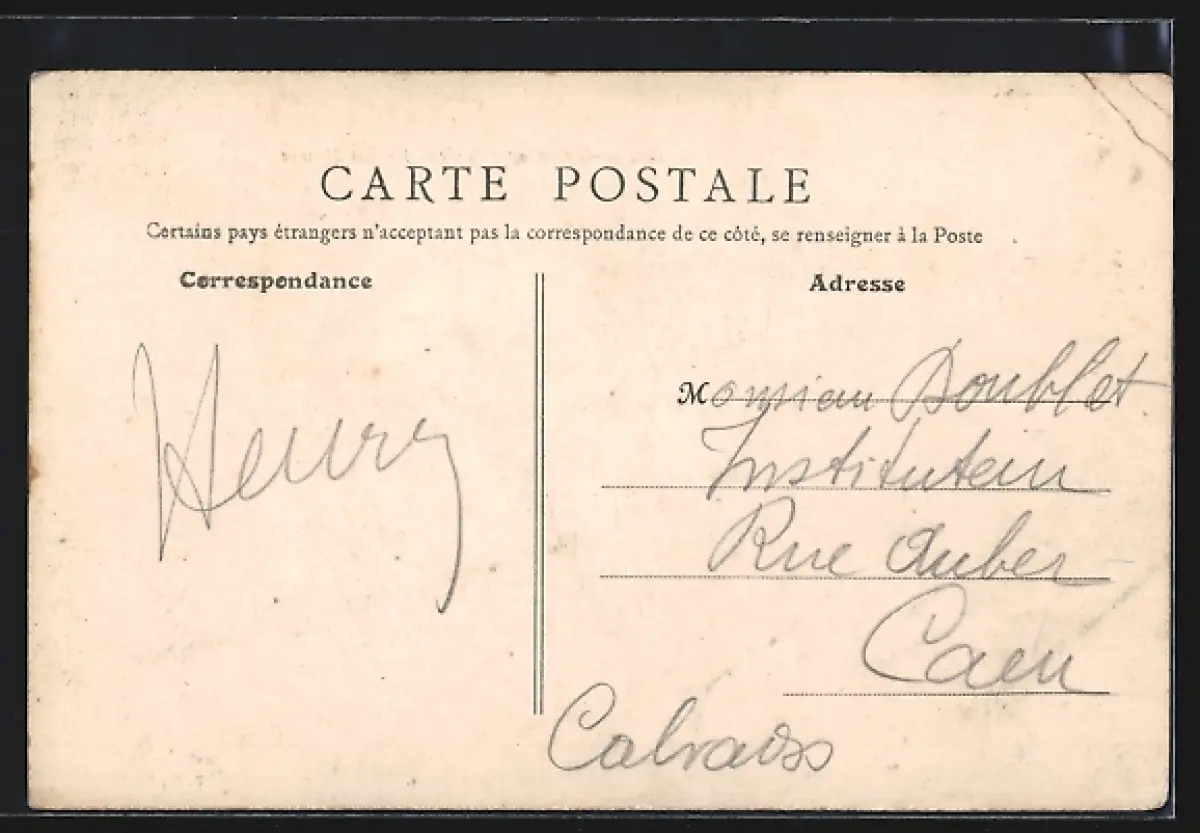 CARTE POSTALE
Certains pays étrangers n'acceptant pas la correspondance de ce côté, se renseigner à la Poste
Correspondance
Henry
Adresse
Monsieur Doublet
Instituteur
Rue Auber
Caen
Calvados